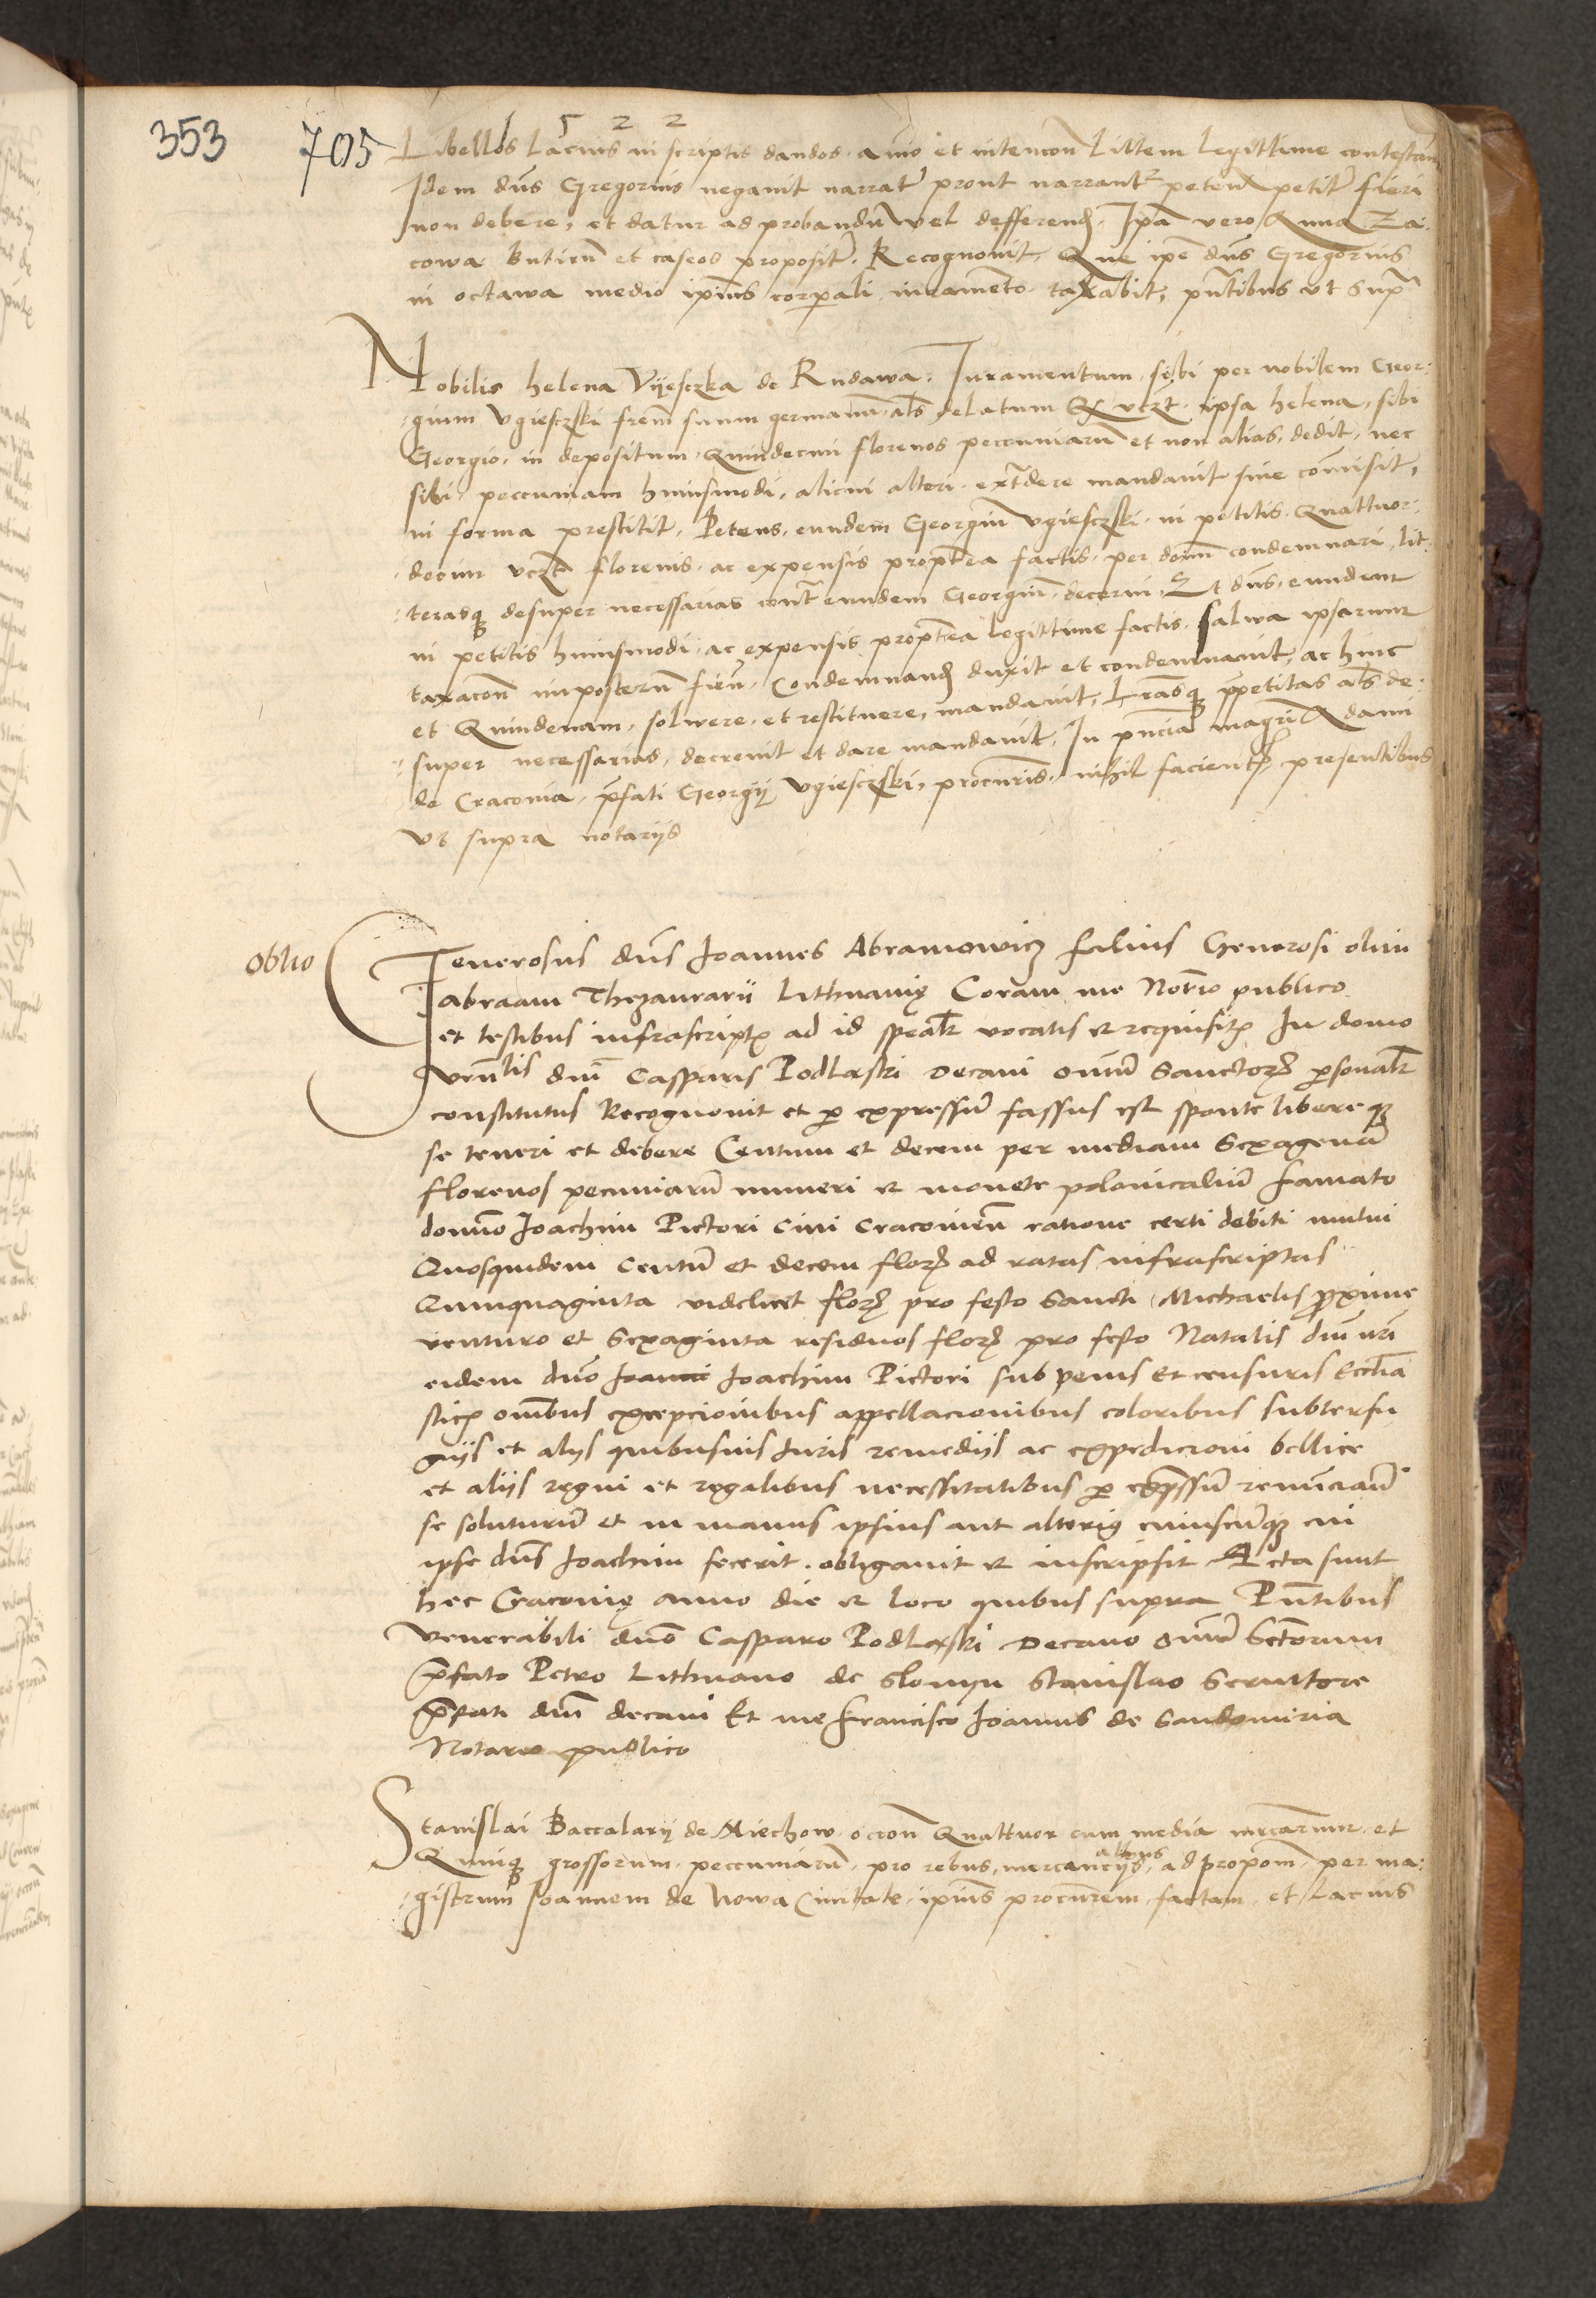 353
705
1522
Libellos lacius in scriptis dandos. a∙mo et intencon Littem legittime contestan
Idem dns Gregorius negavit narrat prout narrantr petend petitr fieri
non debere, et datur ad probandu vel defferend. Ipa vero Anna Za-
cowa Butirum et caseos proposit. Recognovit, Que ipe dns Gregorius
in octawa medio ipius corporali iuramento taxabit, pntibus vt supra
Nobilis helena Vyesczka de Rudawa. Iuramentum, sibi per nobilem Geor-
gium Vgiesczski frem suum germanu als delatum Et vczt. ipsa helena, sibi
Georgio, in depositum Quindecim florenos peccuniaru et non alias, dedit, nec
sibi, peccuniam huiusmodi, alicui alteri extradere mandavit sive comisit,
in forma prestitit. Petens, eundem Georgiu Vgiesczski in petitis Quattuor-
decim vczt florenis, ac expensis proptea factis, per dnm condemnari, lit-
terasq desuper necessarias cont eundem Georgiu decerni, Et dns, eundem
in petitis huiusmodi, ac expensis proptea legittime factis, salva ipsarum
taxacon imposteru fien, Condemnand duxit et condemnavit, ac hinc
et Quindenam, solwere, et restituere, mandavit, Lrasq ppetitas als de-
super necessarias, decrevit et dare mandavit, In pncia magri Adami
de Cracovia, pfati Georgij Vgiesczski, procuris, nihil facient, presentibus
vt supra notarijs
Oblio
Generosus dns Joannes Abramowicz filius Generosi olim
abraam Thezaurarii Lithuanię Coram me Notrio publico
et testibus infrascriptis ad id spealr vocatis et requisitis In domo
venlis dni Casparis Podlaski Decani omnium Sanctorum personalr
constitutus Recognovit et per expressum fassus est sponte libereq
se teneri et debere Centum et decem per mediam Sexagenam
florenos pecuniarum numeri et monete polonicalium famato
domino Joachim Pictori Civi Cracovien ratione certi debiti mutui
Quosquidem Centum et decem florenos ad ratas infrascriptas
Quinquaginta videlicet florenos pro festo Sancti Michaelis proxime
venturo et Sexaginta residuos florenos pro festo Natalis dni nri
eidem dno Joanni Joachim Pictori sub penis Et censuris Ecclia
sticis omnibus excepcionibus appellacionibus coloribus subterfu
gijs et alijs quibusvis Juris remedijs ac expedicioni bellice
et alijs regni et regalibus necessitatibus per expressum renuncian
se soluturum et in manus ipsius aut alterius cuiuscumq cui
ipse dns Joachim fecerit. obligavit et inscripsit Acta sunt
hec Cracovię anno die et loco quibus supra Pntibus
Venerabili dno Casparo Podlaski Decano omnium Sctorum
pfato Petro Lithuano de Slonyn Stanislao Servitore
pfati dni decani Et me Francisco Joannis de Sandomiria
Notario publico
Stanislai Baccalarij de Miechow, occon Quattuor cum media mrcarum, et
Quinq grossorum, peccuniaru, pro rebus, mercancijs, alibus ad propom, per ma-
gistrum Joannem de Nowa Civitate, ipius procurem, factam, et lacius